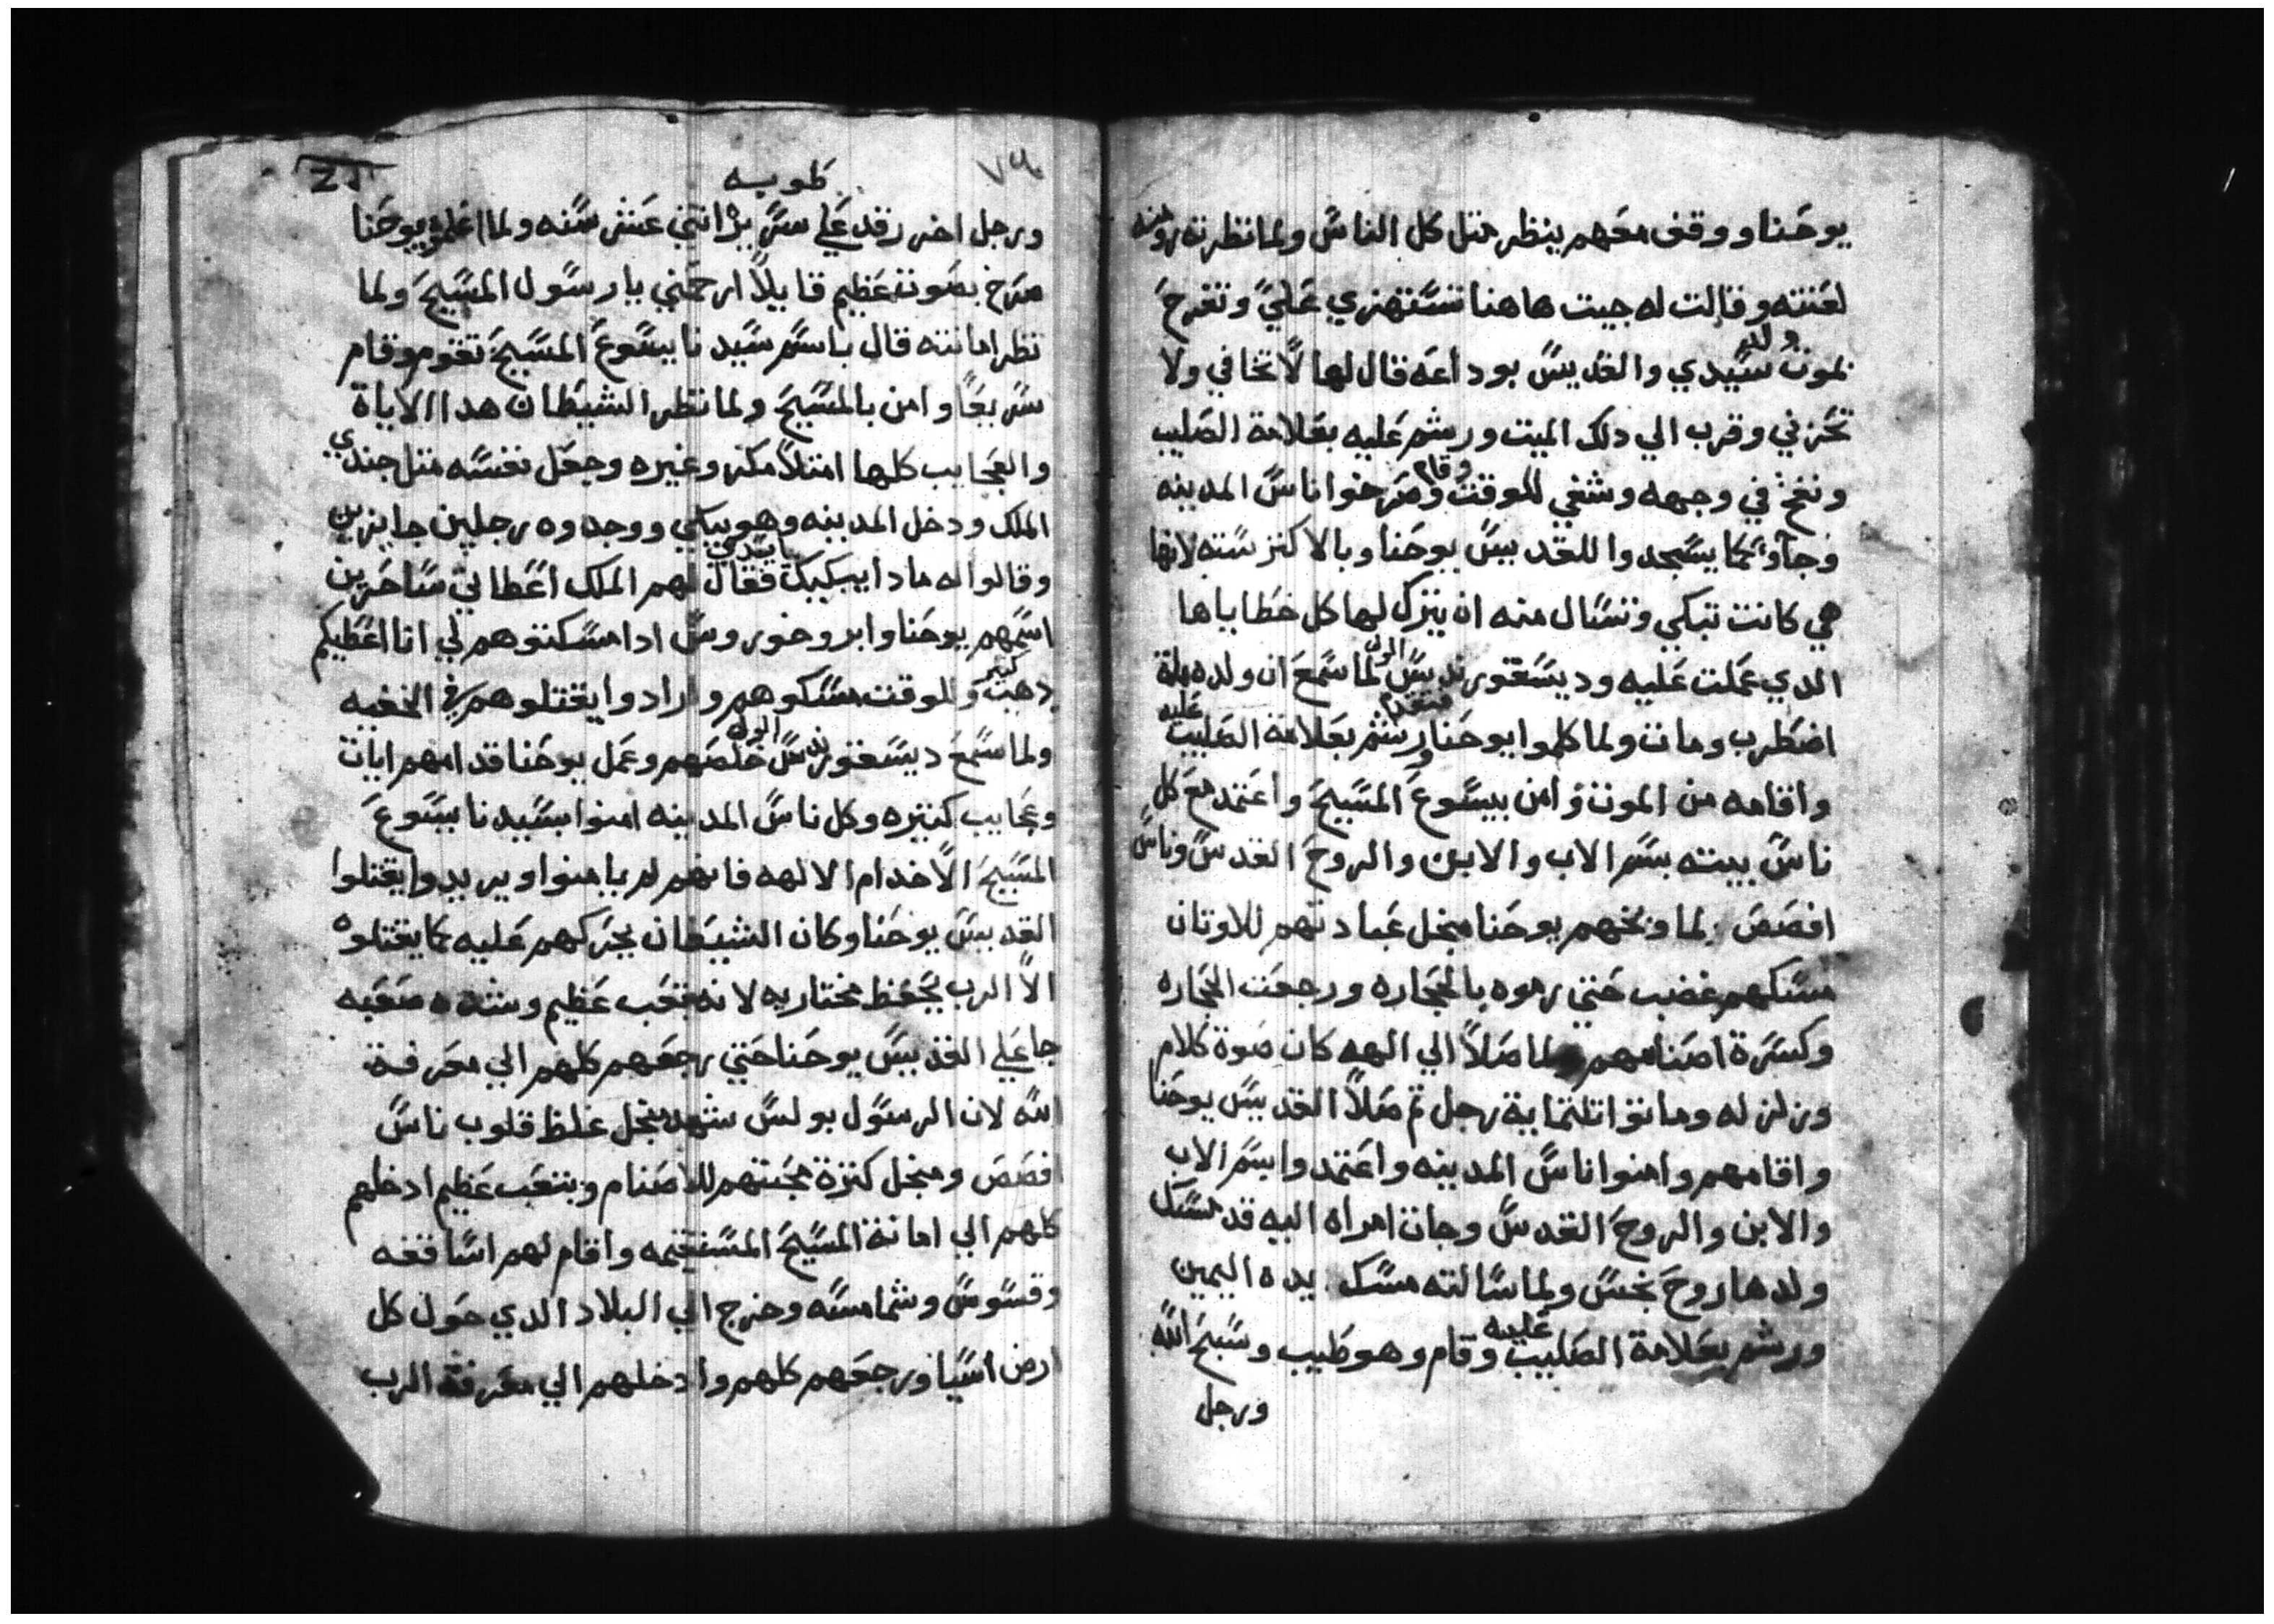 يوحنا ووقف معهم ينظر متل كل الناس ولما نظرته رومنه
لعنته وقالت له جيت هاهنا تستهزي علي وتفرح
بموت ولد سيدي والقديس بوداعه قال لها لا تخافي ولا
تحزني وقرب الي دلك الميت ورشم عليه بعلامة الصليب
ونفخ في وجهه وشفي للوقت وقام وصرخوا ناس المدينه
وجآو كما يسجدوا للقديس يوحنا وبالاكتر سته لانها
هي كانت تبكي وتسال منه ان يترك لها كل خطاياها
الدي عملت عليه وديسقوريدس الوالي لما سمع ان ولده
اضطرب ومات ولما كلموا يوحنا فتقدم ورشم بعلامة الصليب عليه
واقامه من الموت وامن بيسوع المسيح واعتمد مع كل
ناس بيته بسم الاب والابن والروح القدس وناس
افصص لما وبخهم يوحنا منجل عبادتهم للاوتان
مسكهم غضب حتي رموه بالحجاره ورجعت الحجاره
وكسرة اصنامهم ولما صلا الي الهه كان صوة كلام
وزلزله وماتوا تلتماية رجل تم صلا القديس يوحنا
واقامهم وامنوا ناس المدينه واعتمدوا بسم الاب
والابن والروح القدس وجات امراه اليه قد مسك
ولدها روح نجس ولما سالته مسك يده اليمين
ورشم بعلامة الصليب عليه وقام وهو طيب وسبح الله
ورجل
٧٩
طوبيه
ورجل اخر رقد علي سرير اتني عشر سنه ولما اعلموا يوحنا
صرخ بصوت عظيم قايلا ارحمني يا رسول المسيح ولما
نظر امانته قال باسم سيدنا يسوع المسيح تقوم وقام
سريعا وامن بالمسيح ولما نظر الشيطان هدا الاياة
والعجايب كلها امتلا مكر وغيره وجعل نفسه متل جندي
الملك ودخل المدينه وهو يبكي ووجدوه رجلين جايزين
وقالوا له مادا يبكيك يا سيدي فقال لهم الملك اعطاني ساحرين
اسمهم يوحنا وابروخوروس ادا مسكتوهم لي انا اعطيكم
دهب كتير وللوقت مسكوهم وارادوا يقتلوهم في الخفيه
ولما سمع ديسقوريدس الوالي خلصهم وعمل يوحنا قدامهم ايات
وعجايب كتيره وكل ناس المدينه امنوا بسيدنا يسوع
المسيح الا خدام الالهه فانهم لم يامنوا ويريدوا يقتلوا
القديس يوحنا وكان الشيطان يحركهم عليه كما يقتلوه
الا الرب يحفظ مختاريه لانه تعب عظيم وشده صعبه
جا علي القديس يوحنا حتي رجعهم كلهم الي معرفة
الله لان الرسول بولس شهد منجل غلظ قلوب ناس
افصص ومنجل كترة محبتهم للاصنام وبتعب عظيم ادخلهم
كلهم الي امانة المسيح المستقيمه واقام لهم اساقفه
وقسوس وشمامسه وخرج الي البلاد الدي حول كل
ارض اسيا ورجعهم كلهم وادخلهم الي معرفة الرب